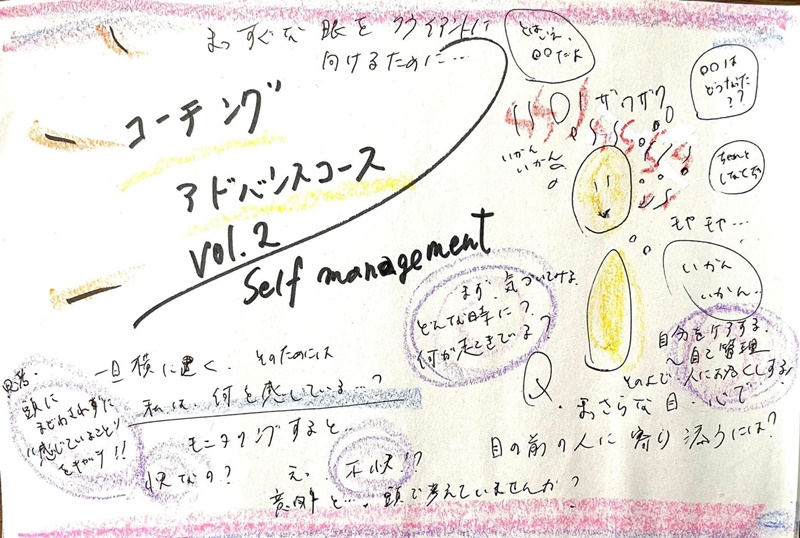 まっすぐな眼をクライアントに
向けるために…
コーチング
アドバンスコース
vol.2
Self management
とはいえ、
〇〇だよ
〇〇は
どうなった
??
ザワザワ
いかん
いかん
ちゃんと
しなくちゃ
モヤモヤ…
いかん
いかん…
まず、気づいてみる
どんな時に?
何が起きてる?
自分をケアする
〜自己管理
その上で、人にお返しする!
一旦横に置く。そのためには
私は、何を感じている…?
頭に
まどわされずに
感じていることに
をさがす!!
モニタリングすると…
快なの?
え、不快!?
意外と…、頭で考えていませんか?
Q
・まっさらな目・心で
目の前の人に寄り添うには?